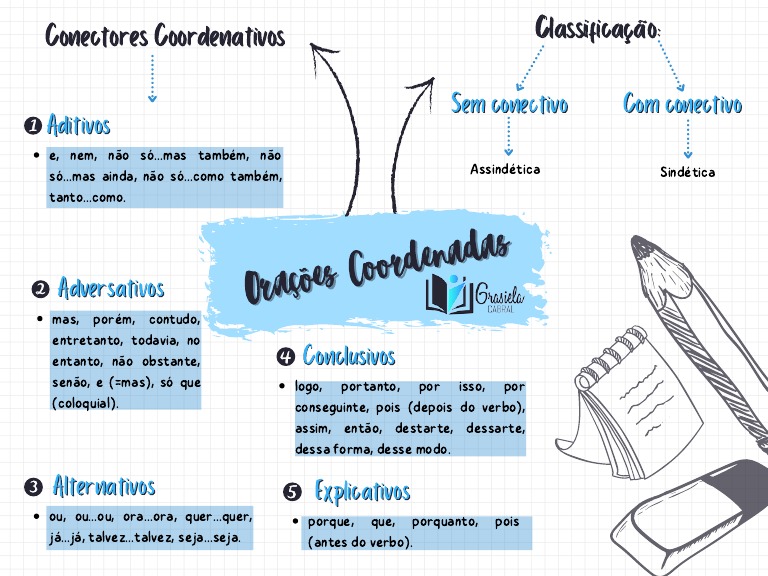 Conectores Coordenativos
1 Aditivos
• e, nem, não só...mas também, não
só...mas ainda, não só...como também,
tanto...como.
2 Adversativos
• mas, porém, contudo,
entretanto, todavia, no
entanto, não obstante,
senão, e (=mas), só que
(coloquial).
3 Alternativos
• ou, ou...ou, ora...ora, quer...quer,
já...já, talvez...talvez, seja...seja.
Classificação:
Sem conectivo
Com conectivo
Assindética
Sindética
Orações Coordenadas
Grasiela
CABRAL
4 Conclusivos
• logo, portanto, por isso, por
conseguinte, pois (depois do verbo),
assim, então, destarte, dessarte,
dessa forma, desse modo.
5 Explicativos
• porque, que, porquanto, pois
(antes do verbo).